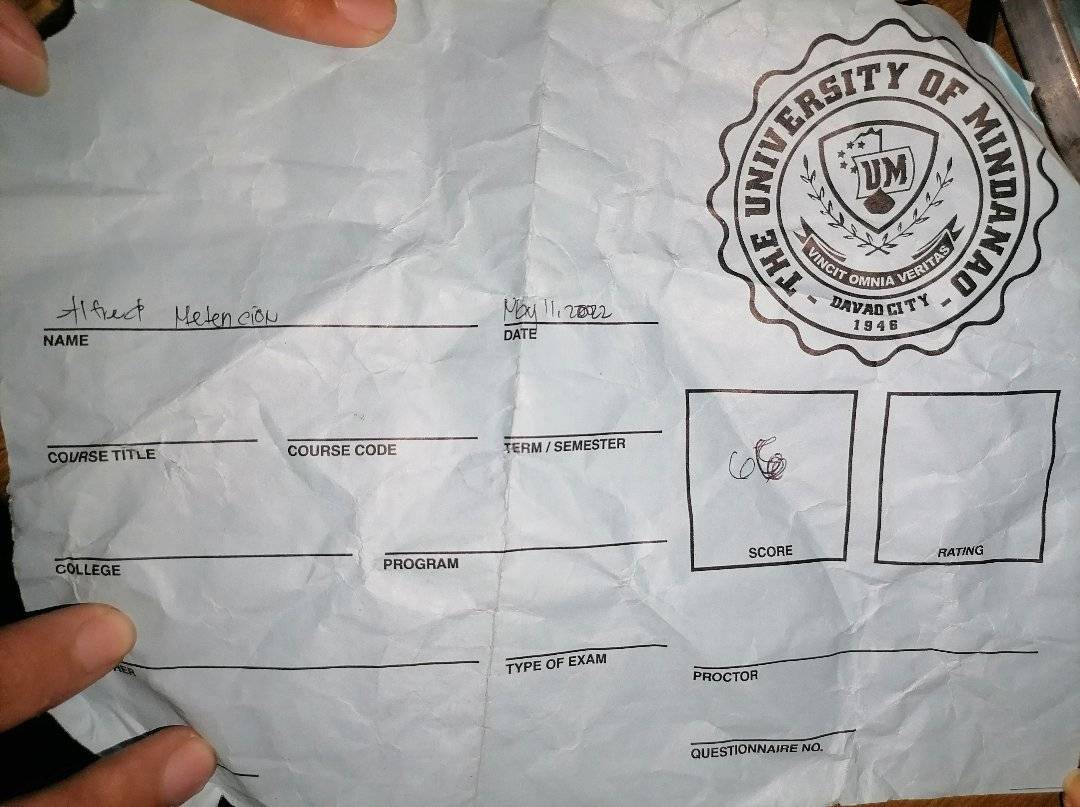 THE UNIVERSITY OF MINDANAO
UM
VINCIT OMNIA VERITAS
- DAVAO CITY -
1946
Alfred Metencion
May 11, 2022
NAME
DATE
COURSE TITLE
COURSE CODE
TERM / SEMESTER
SCORE
RATING
COLLEGE
PROGRAM
TYPE OF EXAM
PROCTOR
QUESTIONNAIRE NO.